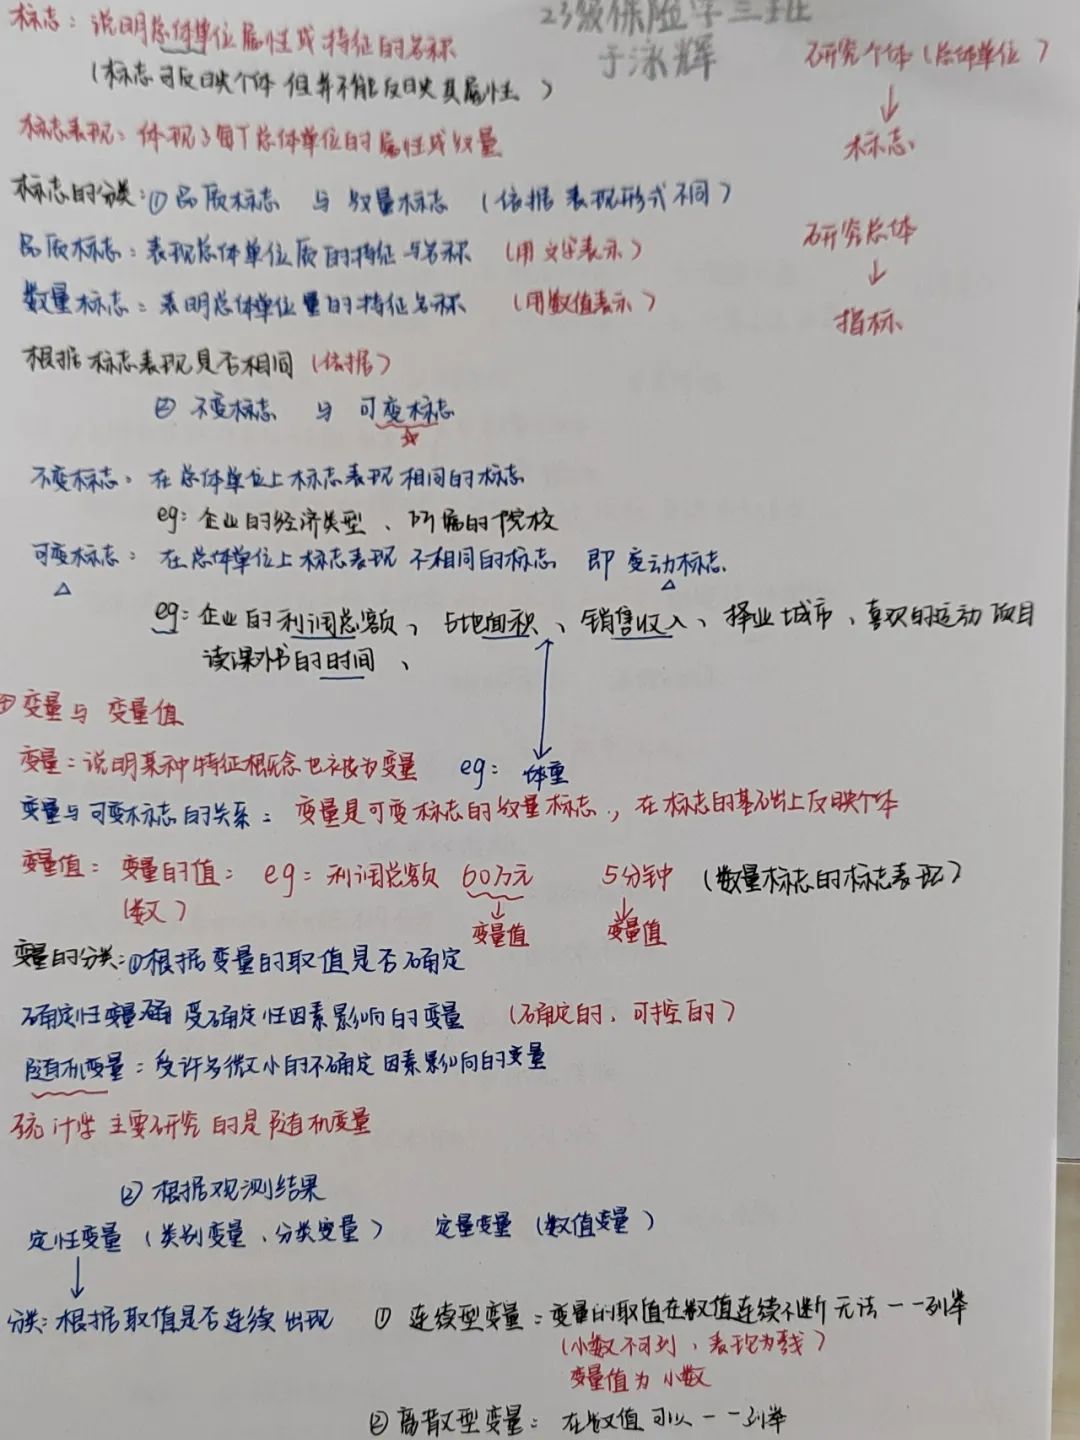 23级保险学三班
于泳辉
标志：说明总体单位属性或特征的名称
（标志可反映个体 但并不能反映其属性）
研究个体（总体单位）
↓
标志
标志表现：体现了每个总体单位的属性或数量
标志的分类：① 品质标志 与 数量标志 （依据 表现形式不同）
品质标志：表现总体单位质的特征与名称 （用文字表示）
数量标志：表明总体单位量的特征名称 （用数值表示）
研究总体
↓
指标
根据标志表现是否相同（依据）
② 不变标志 与 可变标志
☆
不变标志：在总体单位上标志表现相同的标志
eg：企业的经济类型、所属的院校
可变标志：在总体单位上标志表现不相同的标志 即 变动标志
△ △
eg：企业的利润总额、占地面积、销售收入、择业城市、喜欢的运动项目
读课外书的时间、
变量与变量值
变量：说明某种特征概念也被称为变量 eg：体重
变量与可变标志的关系：变量是可变标志的数量标志，在标志的基础上反映个体
变量值：变量的值：eg：利润总额 60万元 5分钟 （数量标志的标志表现）
（数） ↓ ↓
变量值 变量值
变量的分类：①根据变量的取值是否确定
确定性变量 受确定性因素影响的变量 （确定的、可控的）
随机变量：受许多微小的不确定因素影响的变量
统计学主要研究的是随机变量
② 根据观测结果
定性变量（类别变量、分类变量） 定量变量（数值变量）
↓
分类：根据取值是否连续出现 ① 连续型变量：变量的取值在数值连续不断 无法一一列举
（小数不可列，表现为线）
变量值为小数
② 离散型变量：在数值可以一一列举